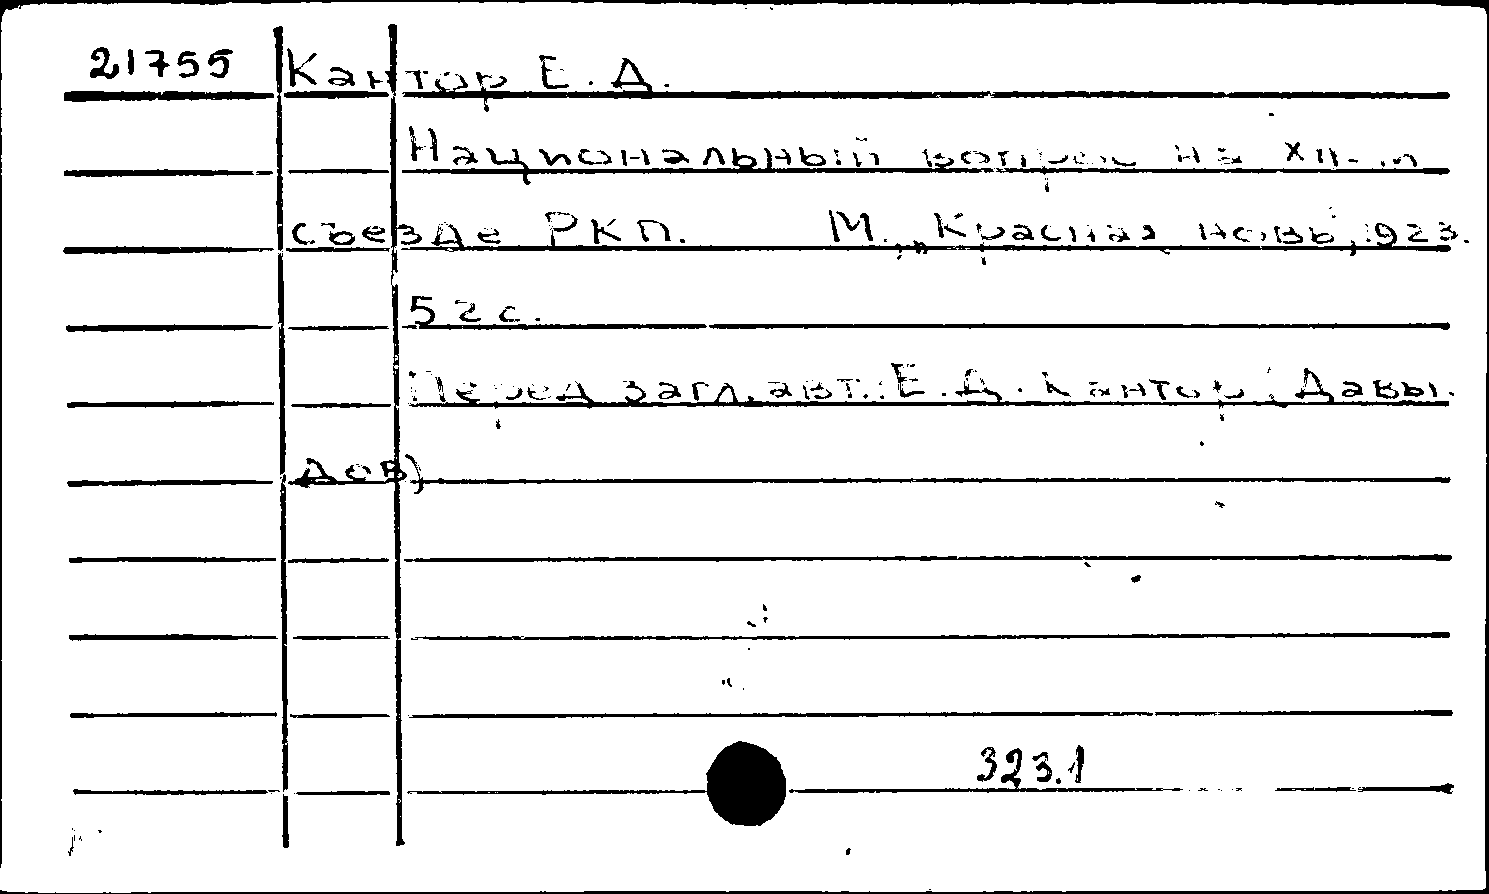 21755 Кантор Е. Д.
Национальный вопрос на XII-м
съезде РКП. М., „Красная новь, 1923.
52 с.
Перед загл. авт.: Е. Д. Кантор (Давы-
дов)
323.1